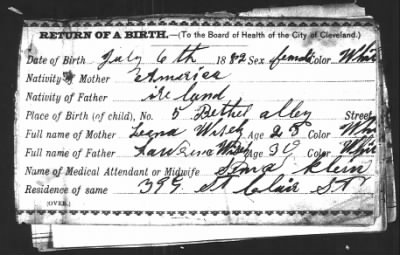 RETURN OF A BIRTH.—(To the Board of Health of the City of Cleveland.)
Date of Birth July 6th 1882 Sex female Color Whit
Nativity of Mother America
Nativity of Father ire land
Place of Birth (of child), No. 5 Bethel alley Street
Full name of Mother Age 28 Color
Full name of Father Age 30 Color White
Name of Medical Attendant or Midwife klein
Residence of same 399 St Clair St
(OVER.)